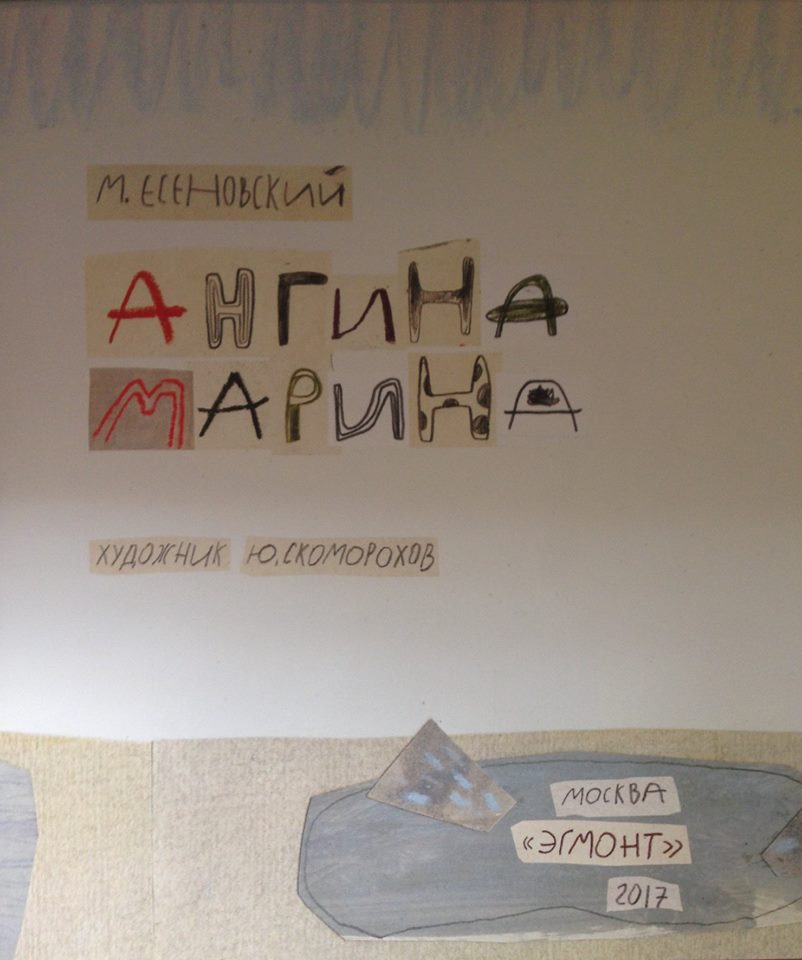 М. ЕСЕНОВСКИЙ
АНГИНА
МАРИНА
ХУДОЖНИК Ю. СКОМОРОХОВ
МОСКВА
«ЭГМОНТ»
2017